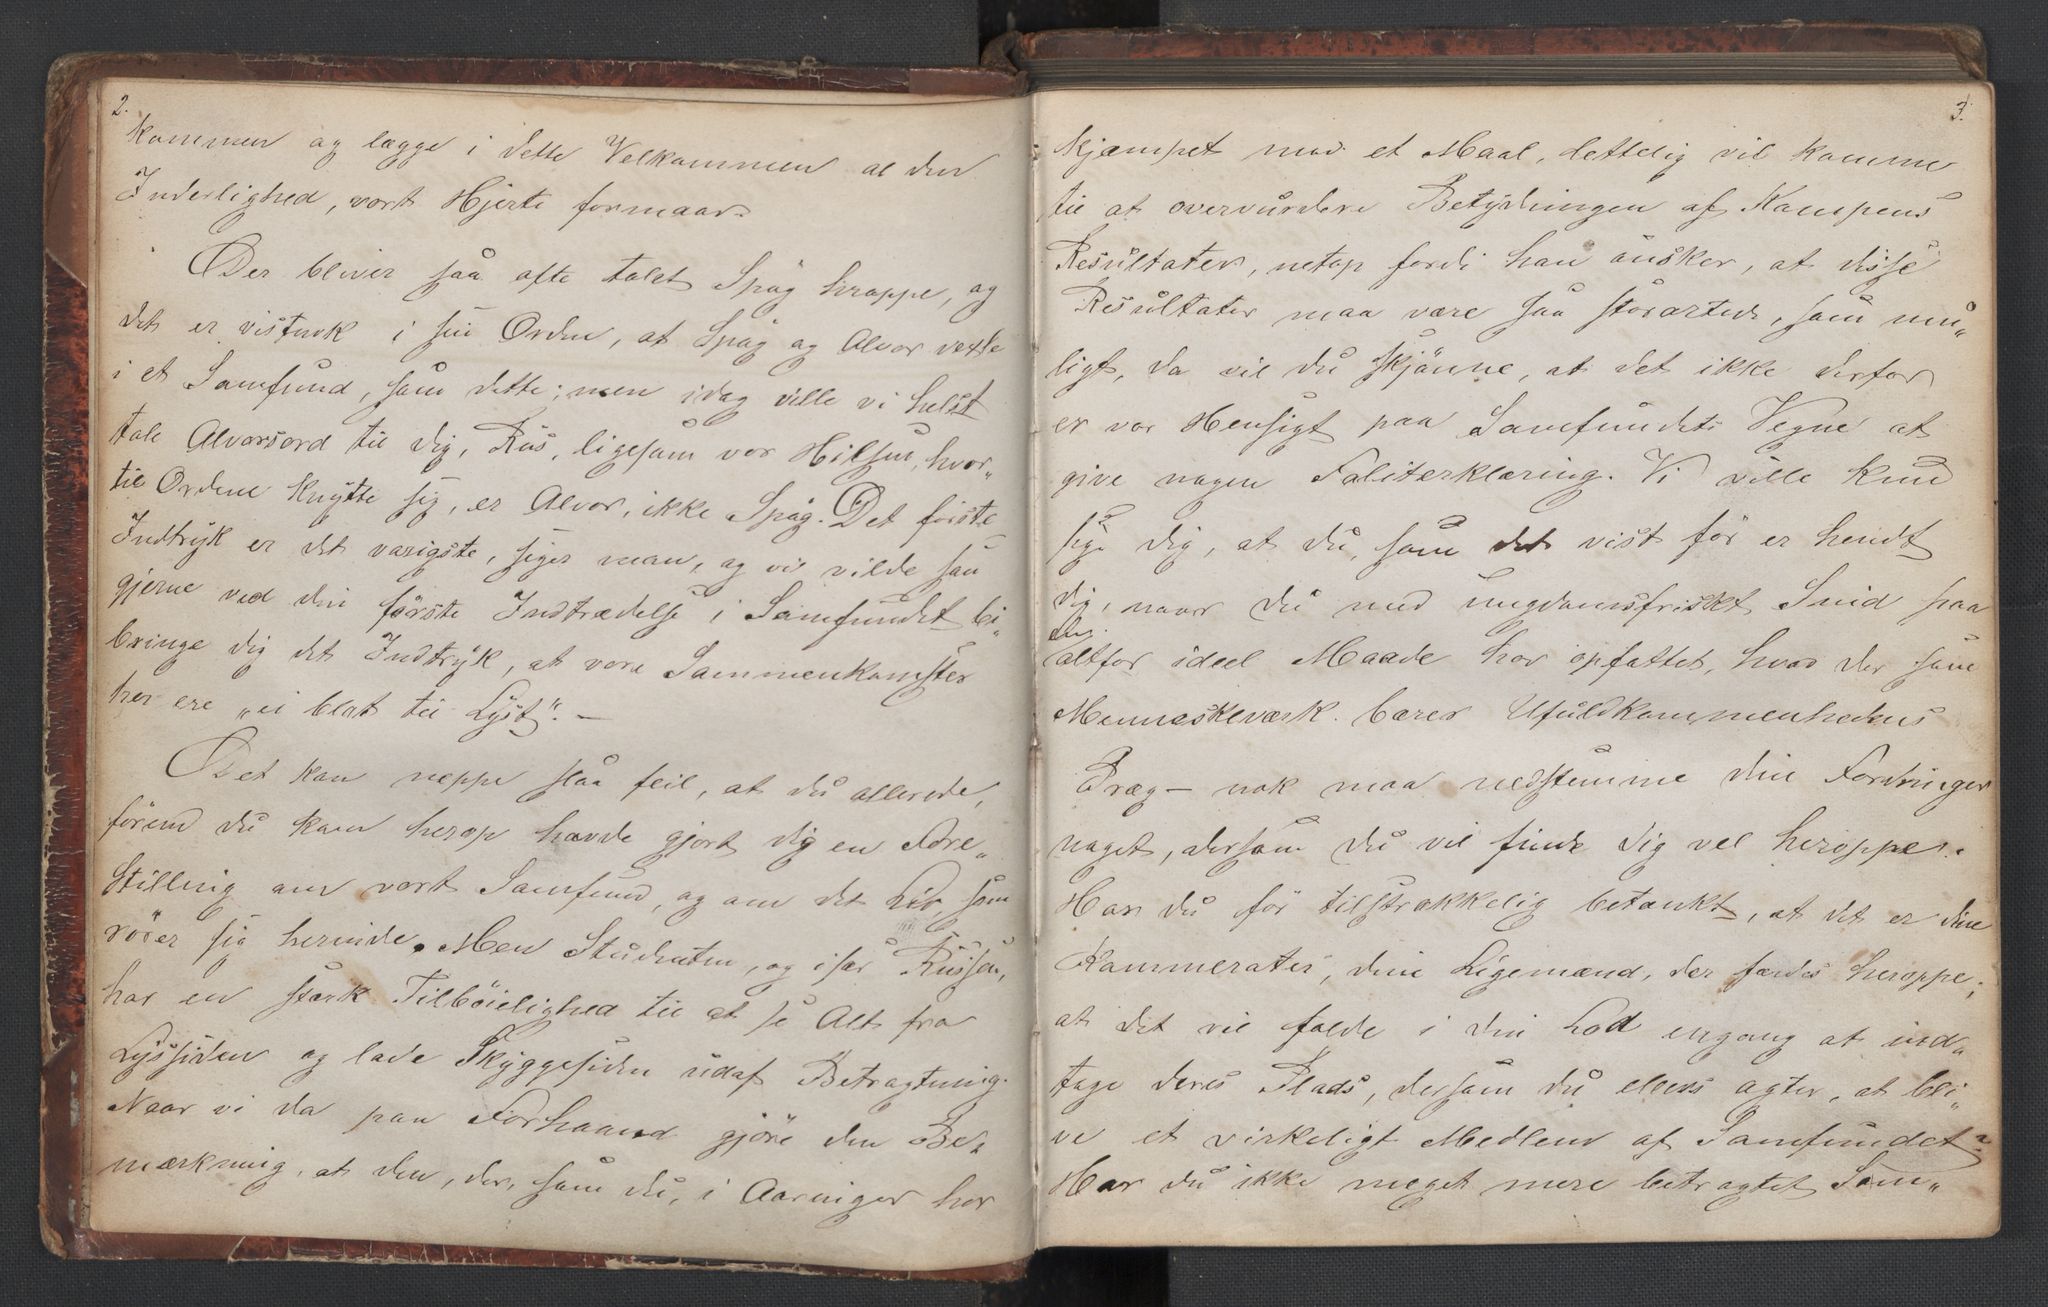 2.
kommen og lægge i dette Velkommen al den
Inderlighed, vort Hjerte formaar.
Der bliver saa ofte talet Spög heroppe, og
det er vistnok i sin Orden, at Spög og Alvor vexle
i et Samfund, som dette; men idag ville vi helst
tale Alvorsord til dig, Rus, ligesom vor Hilsen, hvor„
til Ordene knytte sig, er Alvor, ikke Spög. Det förste
Indtryk er det varigste, siger man, og vi vilde saa
gjerne ved din förste Indtrædelse i Samfundet bi„
bringe dig det Indtryk, at vore Sammenkomster
her ere „ei blot til Lyst”. —
Det kan neppe slaa feil, at du allerede,
förend du kom herop havde gjort dig en Fore„
stilling om vort Samfund, og om det Liv, som
rörer sig herinde. Men Studenten, og især Russen,
har en stærk Tilböielighed til at se Alt fra
Lyssiden og lade Skyggesiden udaf Betragtning.
Naar vi da paa Forhaand gjöre den Be„
mærkning, at den, der, som du, i Aaringer har
3.
kjæmpet mod et Maal, lettelig vil komme
til at overvurdere Betydningen af Kampens
Resultater, netop fordi han önsker, at disse
Resultater maa være saa storartede, som mu„
ligt, da vil du skjönne, at det ikke derfor
er vor Hensigt paa Samfundets Vegne at
give nogen Faliterklæring. Vi ville kun
sige dig, at du, som det vist för er hendt
dig, naar du med ungdomsfriskt Sind paa
altfor ideel Maade har opfattet, hvad der som
Menneskeværk bærer Ufuldkommenhedens
Præg — nok maa nedstemme dine Fordringer
noget, dersom du vil finde dig vel heroppe.
Har du för tilstrækkelig betænkt, at det er dine
Kammerater, dine Ligemænd, der færdes heroppe;
at det vil falde i din Lod engang at ind„
tage deres Plads, dersom du ellers agter, at bli„
ve et virkeligt Medlem af Samfundet?
Har du ikke meget mere betragtet Sam„